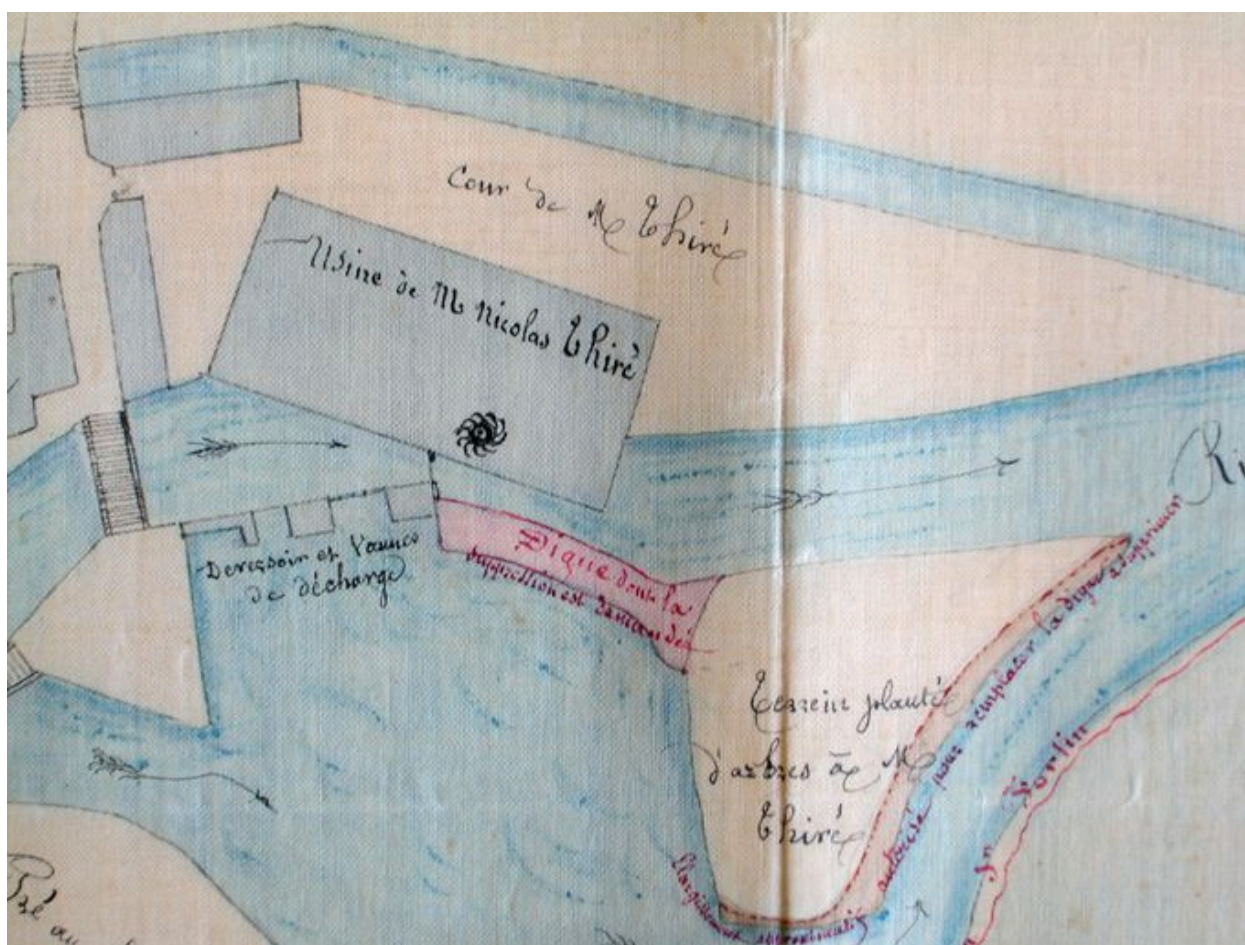 Cour de M Thiré
Usine de M Nicolas Thiré
Déversoir et Vannes
de décharge
Digue dont la
suppression est demandée
Terrein planté
d'arbres à M
Thiré
Elargissement approximatif autorisé pour remplacer la digue à supprimer
Ri
Pré au